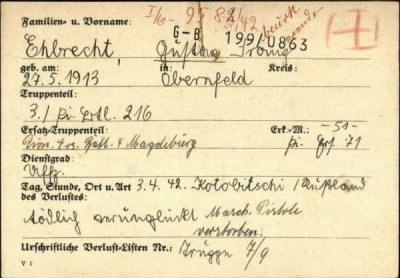 Familien- u. Vorname: I/6- 95 82/42
G-B 199/0863
Ehlbrecht, Gustav
geb. am: in: Kreis:
27.5.1913 Obernfeld
Truppenteil:
3./ Pi. Btl. 216
Ersatz-Truppenteil: Erk.-M.: -51-
Pion. Ers. Batl. 4 Magdeburg Pi. Ers. 71
Dienstgrad:
Uffz.
Tag, Stunde, Ort u. Art 3.4.42. Kotobitschi /Rußland
des Verlustes:
tödlich verunglückt Masch. Pistole
verstorben.
Urschriftliche Verlust-Listen Nr.: Brügge 7/9
V 1